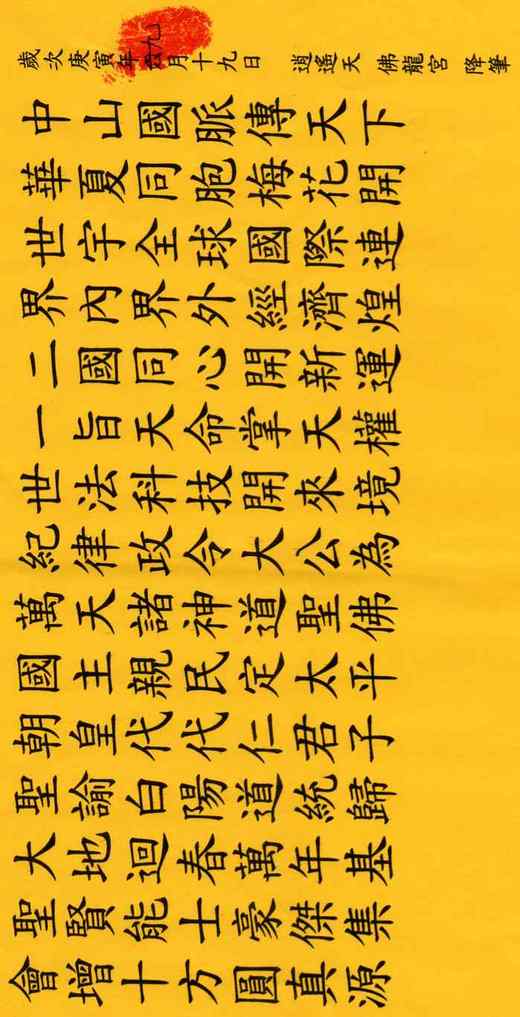 歲次庚寅年九月十九日 逍遙天 佛龍宮 降筆
中山國脈傳天下
華夏同胞梅花開
世宇全球國際連
界內界外經濟煌
二國同心開新運
一旨天命掌天權
世法科技開來境
紀律政令大公為
萬天諸神道聖佛
國主親民定太平
朝皇代代仁君子
聖諭白陽道統歸
大地迴春萬年基
聖賢能士豪傑集
會增十方圓真源